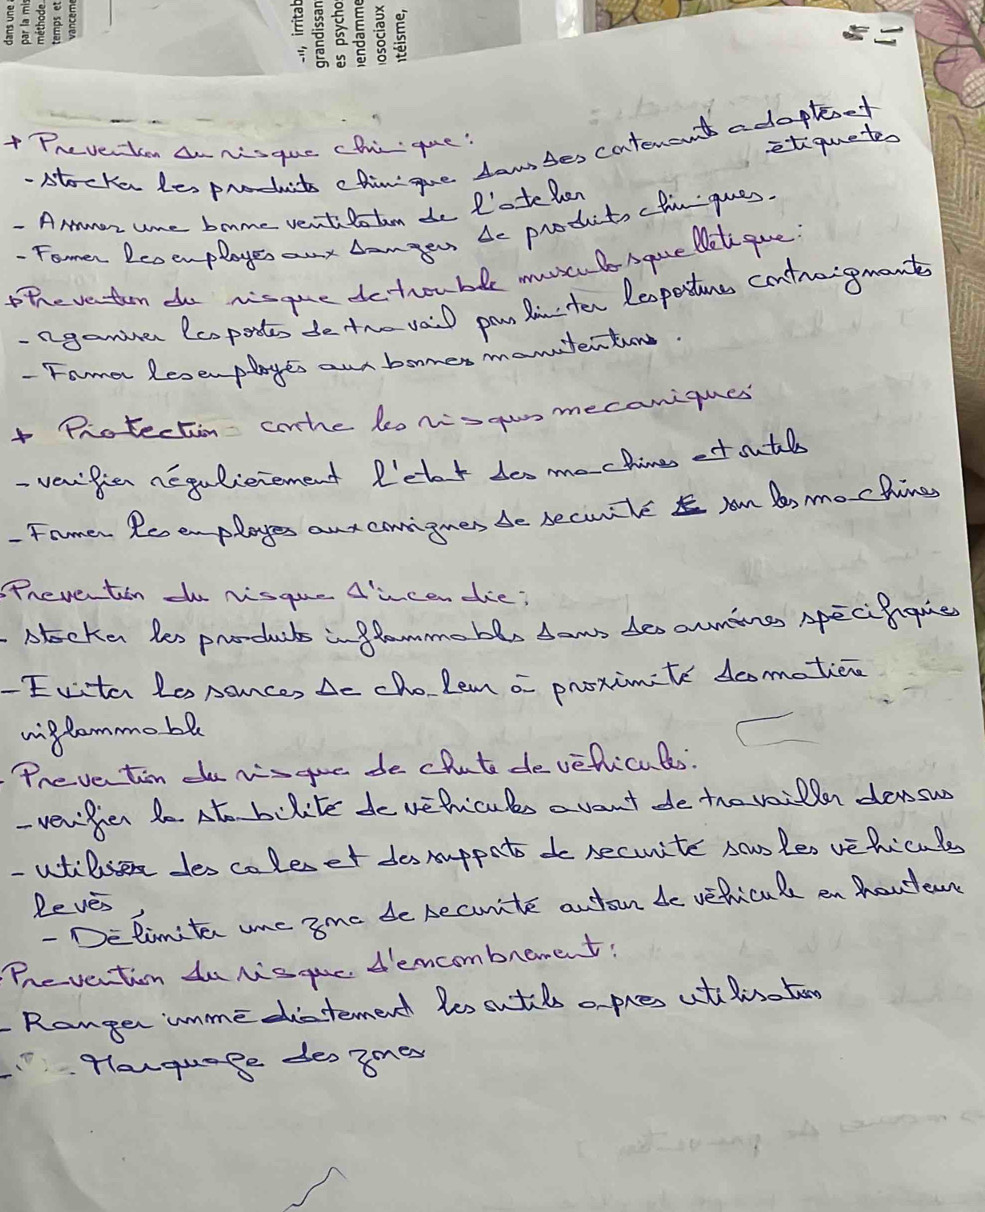 dans une
par la mis
méthode.
temps et
vanceme
irritab
grandissan
es psycho
endamme
osociaux
téisme,
+ Prevention du risque chimique :
- stocker les produits chimique dans des contenants adaptés et
étiquetés
- Assurer une bonne ventilation de l'atelier
- Former les employés aux dangers de produits chimiques.
+ Prevention du risque de trouble musculosquelletique :
- organiser les postes de travail pour limiter les postures contraignantes
- Former les employés aux bonnes manutentions.
+ Protection contre les risques mecaniques
- verifier régulièrement l'etat des machines et outils
- Former les employes aux consignes de securité sur les machines
Prevention du risque d'incendie :
- stocker les produits inflammables dans des armoires spécifiques
- Eviter les sources de chaleur à proximité des matière
inflammable
Prevention du risque de chute de véhicules :
- verifier la stabilité de véhicules avant de travailler dessus
- utiliser des cales et des supports de securité sous les véhicules
levés
- Délimiter une zone de securité autour de véhicule en hauteur
Prevention du risque d'encombrement :
- Ranger immédiatement les outils apres utilisation
- Marquage des zones